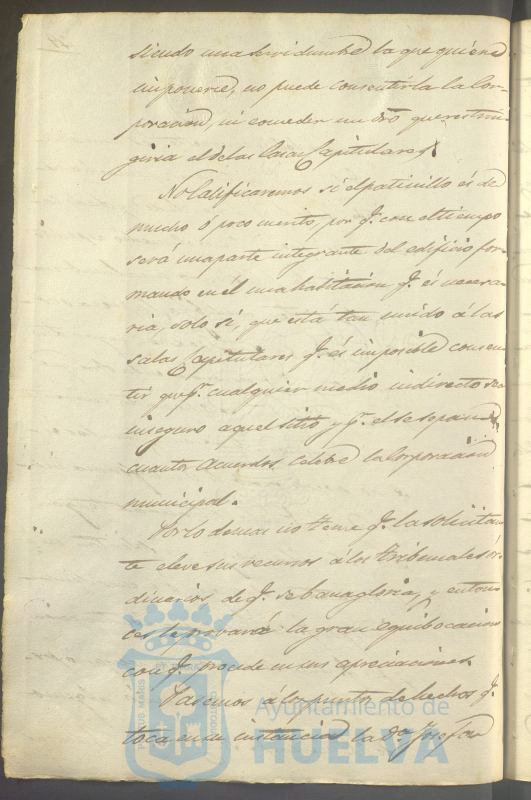 siendo una servidumbre la que quiere
imponerse, no puede consentirla la Cor-
poracion, ni conceder un dro que restrin-
giria el de las Casas Capitulares.
No Calificaremos si el patinillo és de
mucho ó poco merito, por q. con el tiempo
será una parte integrante del edificio for-
mando en él una habitacion q. és necesa-
ria, solo si, que está tan unido á las
salas Capitulares q. és imposible consen-
tir que p. cualquier medio indirecto sea
inseguro aquel sitio y p. el se sepan
cuantos acuerdos celebre la Corporacion
municipal.
Por lo demas no teme q. la solicitan-
te eleve sus recursos á los tribunales ór-
dinarios de q. se banagloria, y enton-
ces le probará la gran equibocacion
con q. procede en sus apreciaciones.
Pasemos á los puntos de hechos q.
toca en su instancia la Da. Josefa
Ayuntamiento de
HUELVA